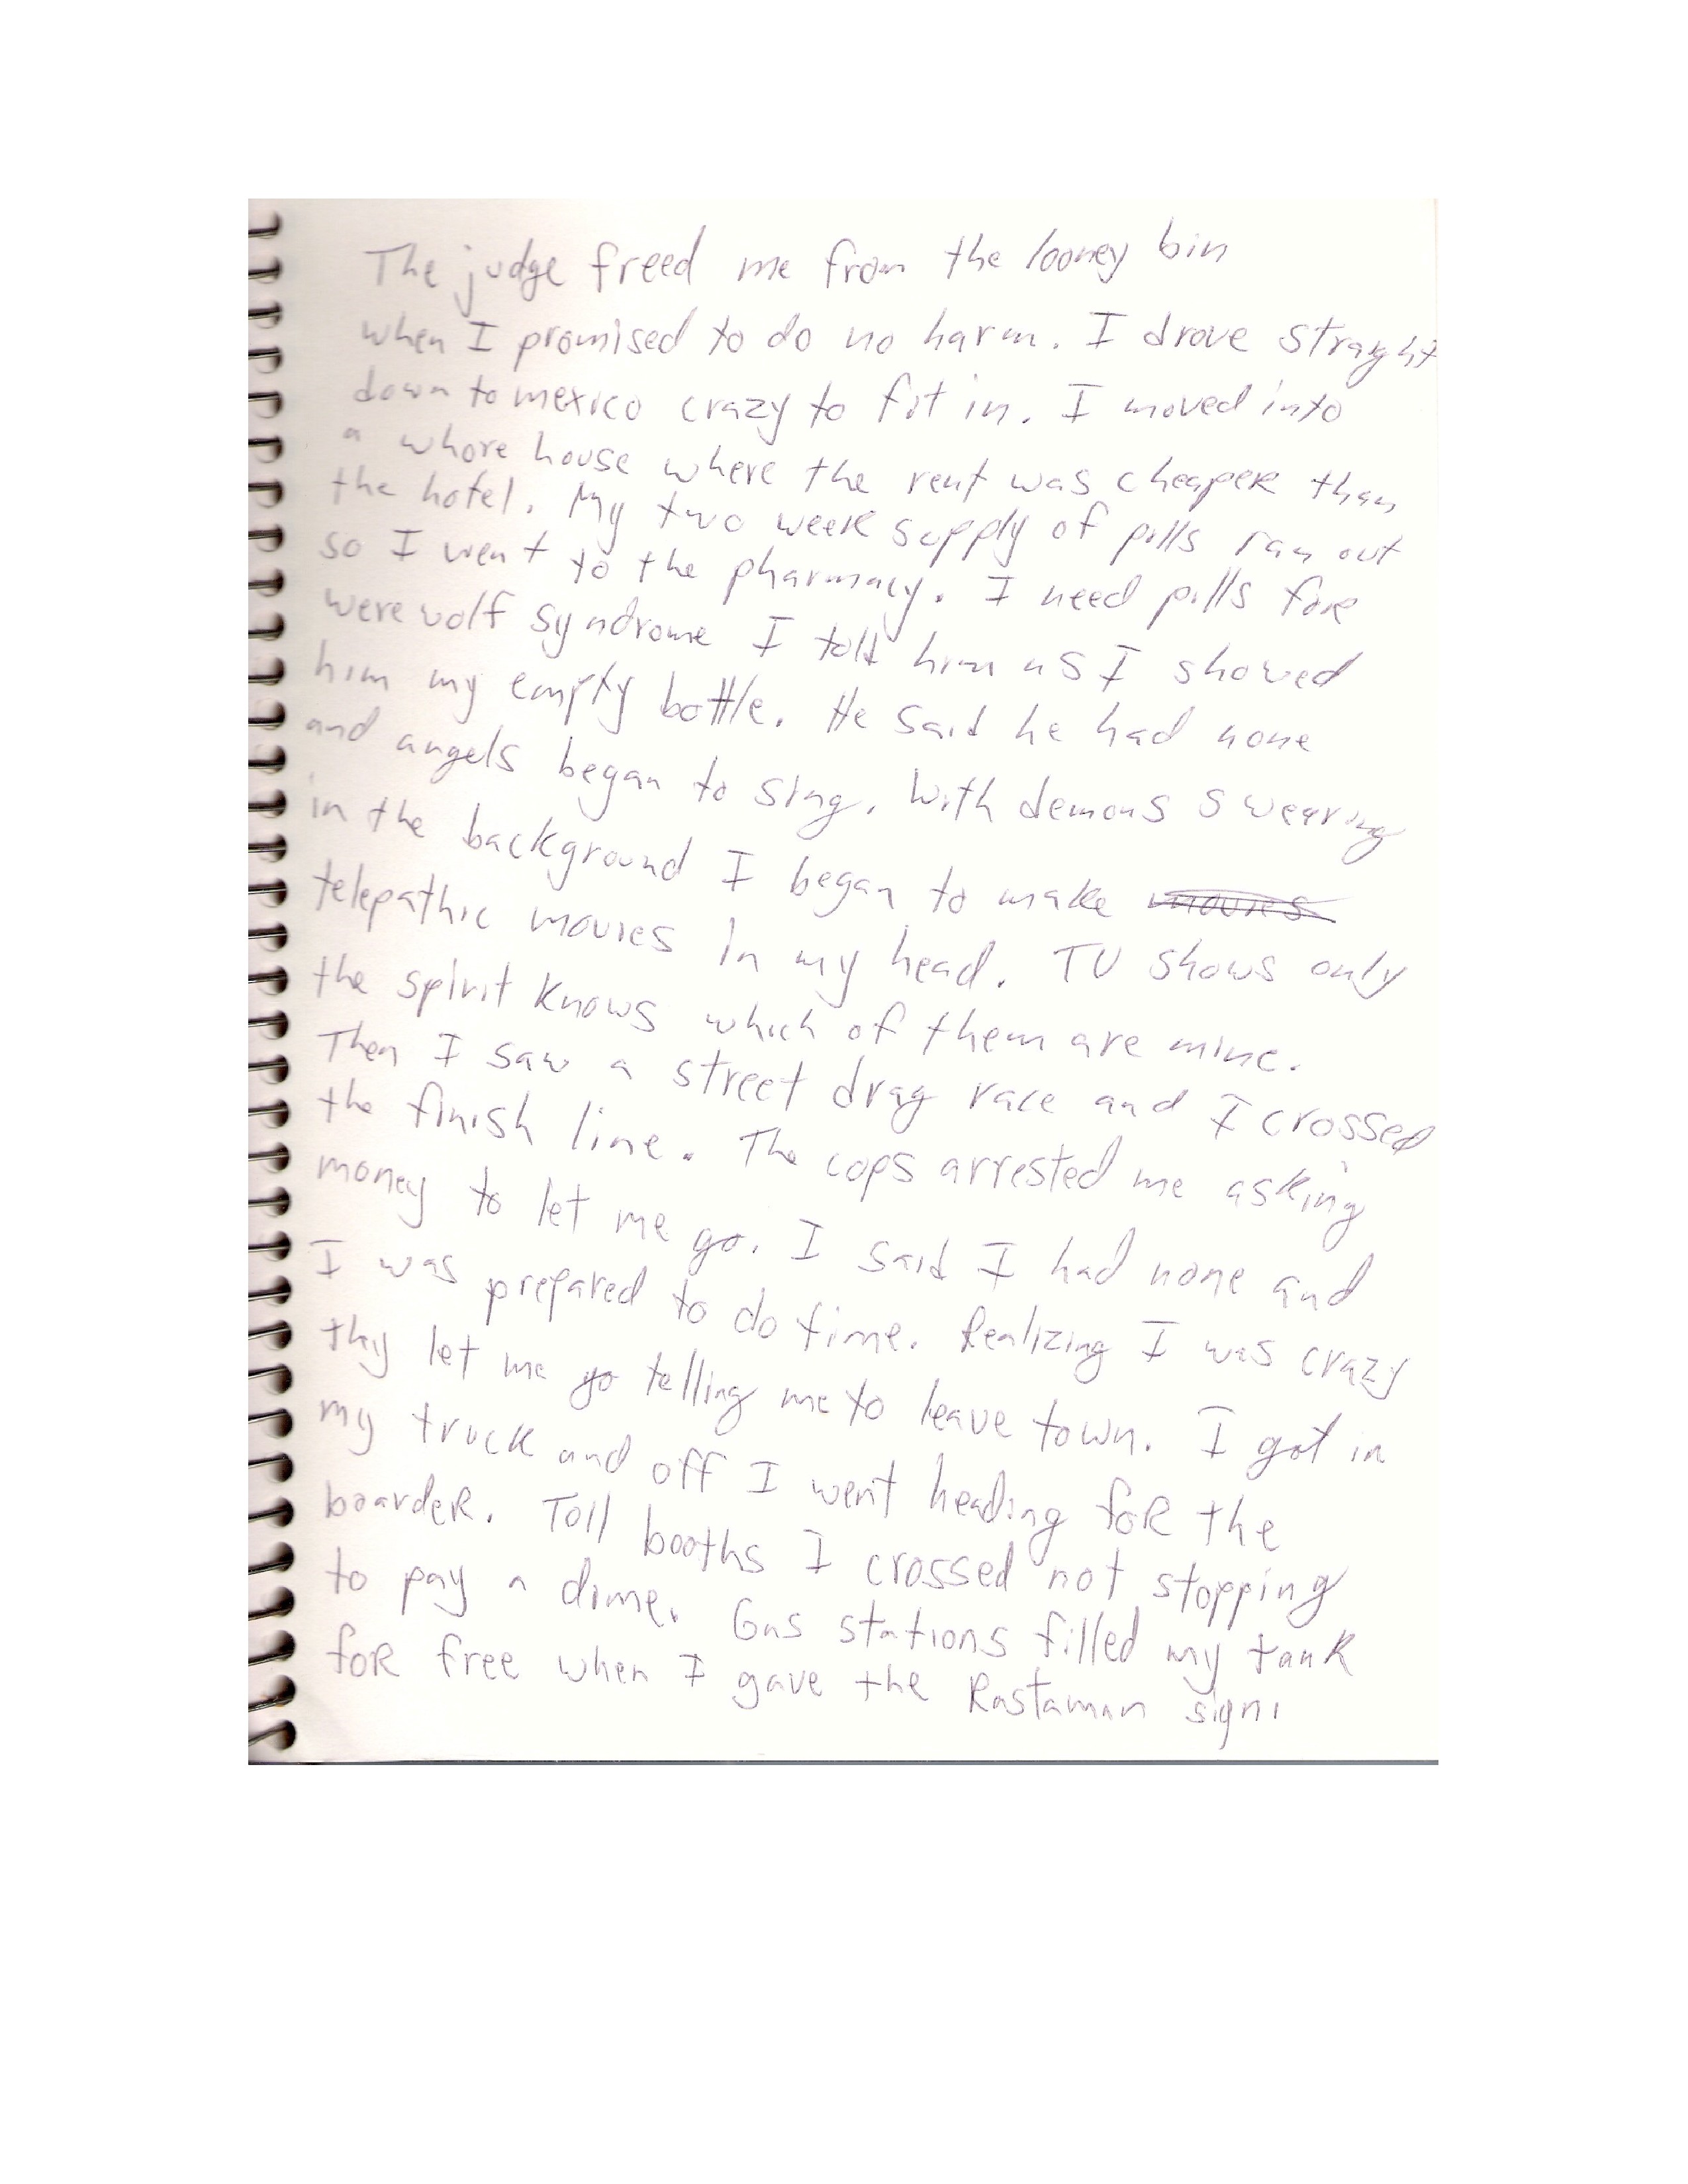 The judge freed me from the looney bin
when I promised to do no harm. I drove straight
down to mexico crazy to fit in. I moved into
a whore house where the rent was cheaper than
the hotel. My two week supply of pills ran out
so I went to the pharmacy. I need pills for
werewolf syndrome I told him as I showed
him my empty bottle. He said he had none
and angels began to sing. With demons swearing
in the background I began to make movies
telepathic movies in my head. TV shows only
the spirit knows which of them are mine.
Then I saw a street drag race and I crossed
the finish line. The cops arrested me asking
money to let me go. I said I had none and
I was prepared to do time. Realizing I was crazy
they let me go telling me to leave town. I got in
my truck and off I went heading for the
boarder. Toll booths I crossed not stopping
to pay a dime. Gas stations filled my tank
for free when I gave the Rastaman sign.